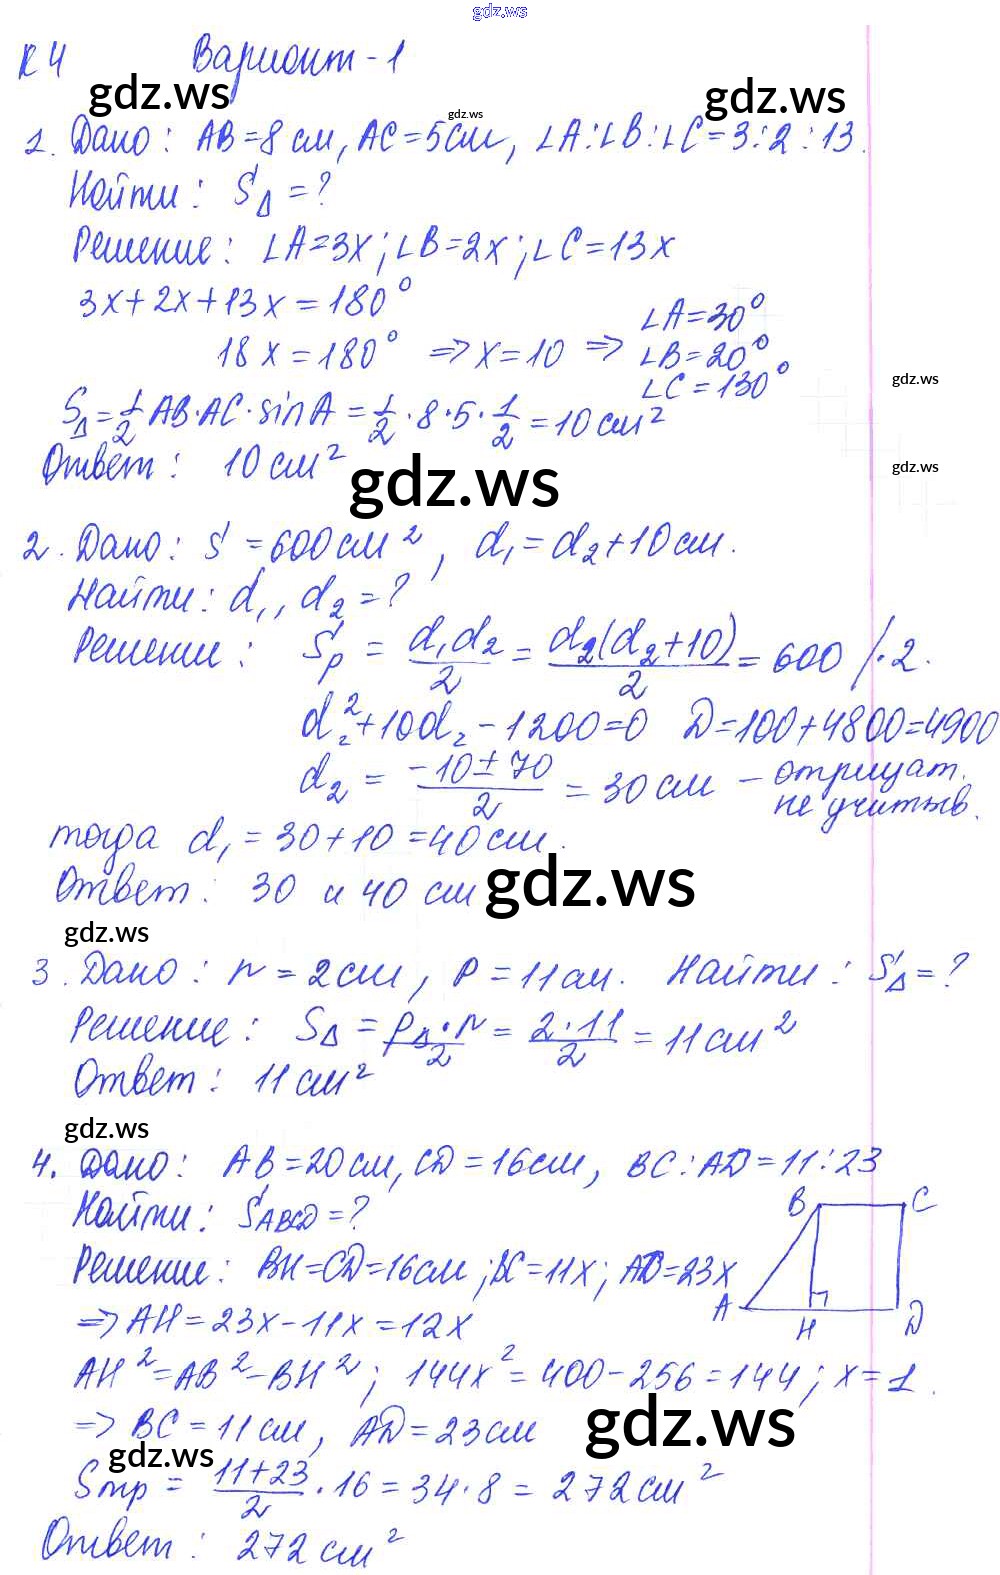 gdz.ws
К 4 Вариант-1
gdz.ws gdz.ws gdz.ws
1. Дано: AB=8 см, AC=5см, ∠A:∠B:∠C=3:2:13.
Найти: S△=?
Решение: ∠A=3x; ∠B=2x; ∠C=13x
3x+2x+13x=180°
18x=180° => x=10 => ∠A=30°
∠B=20°
∠C=130°
gdz.ws
S△=1/2 AB·AC·sinA=1/2·8·5·1/2=10см²
Ответ: 10см²
gdz.ws gdz.ws
2. Дано: S=600см², d₁=d₂+10см.
Найти: d₁, d₂=?
Решение: Sр = d₁d₂/2 = d₂(d₂+10)/2 = 600 /·2.
d₂²+10d₂-1200=0 D=100+4800=4900
d₂ = -10±70/2 = 30см – отрицат.
не учитыв.
тогда d₁=30+10=40см.
Ответ: 30 и 40 см
gdz.ws
gdz.ws
3. Дано: r=2см, P=11см. Найти: S△=?
Решение: S△ = P△·r/2 = 2·11/2 = 11см²
Ответ: 11см²
gdz.ws
4. Дано: AB=20см, CD=16см, BC:AD=11:23
Найти: SABCD=?
B C
Решение: BH=CD=16см; BC=11x; AD=23x
A H D
=> AH=23x-11x=12x
AH²=AB²-BH²; 144x²=400-256=144; x=1.
=> BC=11см, AD=23см
gdz.ws gdz.ws
Sтр = 11+23/2·16=34·8=272см²
Ответ: 272см²